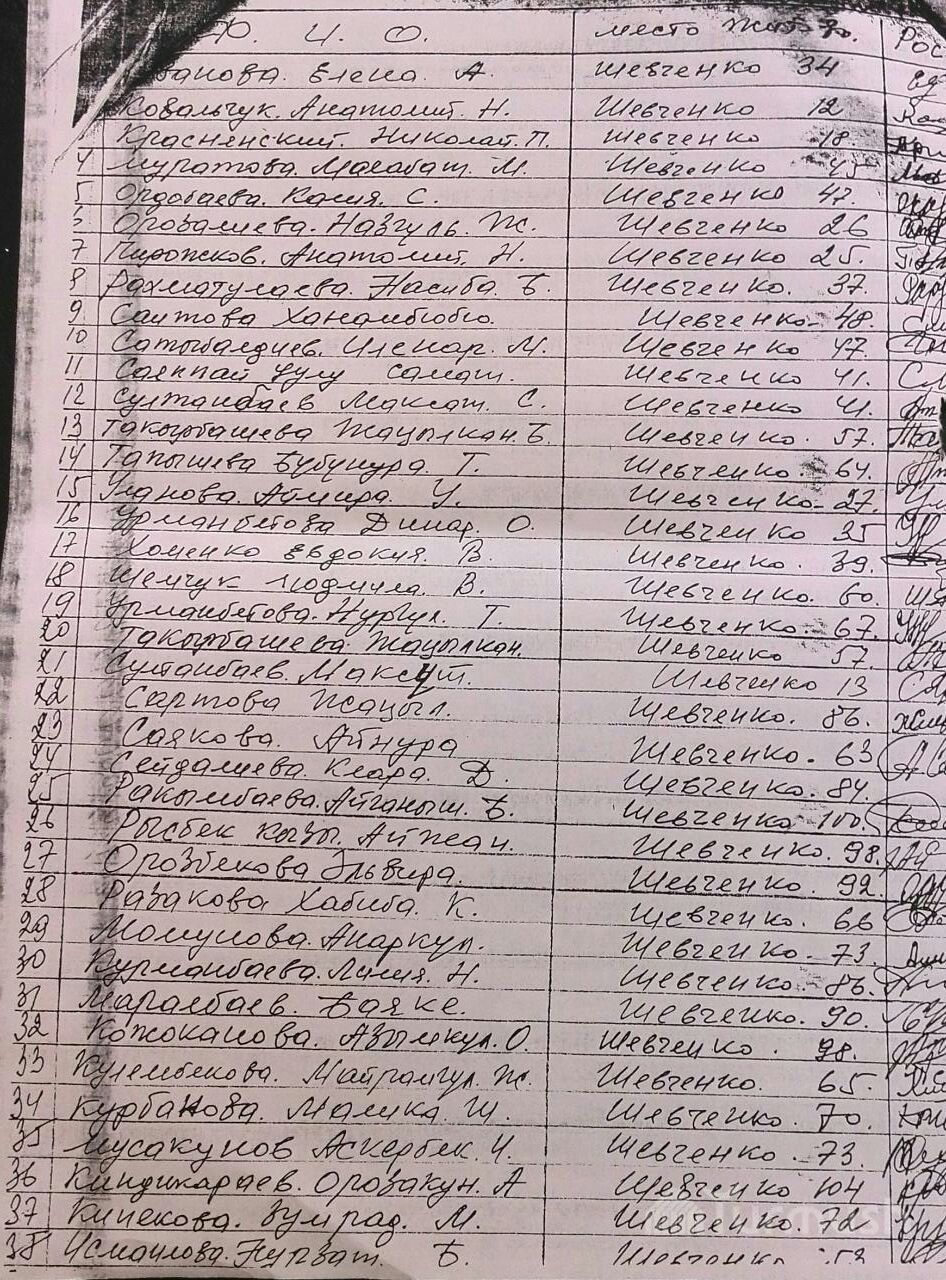 Ф. И. О. место жит-во. Рос
Иванова. Елена. А. Шевченко 34
Ковальчук. Анатолий. Н. Шевченко 12
Красненский. Николай. П. Шевченко 18.
4 Муратова. Махабат. М. Шевченко 45
5 Ордобаева. Калия. С. Шевченко 47.
6 Орозалиева. Назгуль. Ж. Шевченко 26
7 Пирожков. Анатолий. Н. Шевченко 25.
8 Рахматулаева. Насиба. Б. Шевченко. 37.
9. Саитова Ханамбюбю. Шевченко- 48.
10 Сатыбалдиев. Иленар. М. Шевченко 47.
11 Саякпай уулу Самат. Шевченко 41.
12 Султанбаев Максат. С. Шевченко 41.
13 Такырбашева Жацылкан. Б. Шевченко. 57.
14 Тапышева Бубунура. Т. Шевченко. 64.
15 Уланова. Айлира. У. Шевченко-27.
16 Урманбетова Динар. О. Шевченко 35
17 Хоменко Евдокия. В. Шевченко. 39.
18 Шемчук Людмила. В. Шевченко. 60.
19 Урманбетова. Нургул. Т. Шевченко. 67.
20 Такырбашева. Жацылкан. Шевченко 57.
21 Султанбаев. Максут. Шевченко 13
22 Сартова Жацыл. Шевченко. 86.
23 Саякова. Айнура Шевченко. 63
24 Сейдалиева. Клара. Д. Шевченко. 84.
25 Ракымбаева. Айганыш. Б. Шевченко 100.
26 Рысбек кызы. Айжан. Шевченко. 98.
27 Орозбекова Эльвира. Шевченко. 92.
28 Разакова. Хабиба. К. Шевченко. 66
29 Момунова. Анаркул. Шевченко. 73.
30 Курманбаева. Лилия. Н. Шевченко. 86.
31 Маралбаев. Баяке. Шевченко. 90.
32 Кожоканова. Азымкул. О. Шевченко. 98.
33 Кулембекова. Майрамгул. Ж. Шевченко. 65.
34 Курбанова. Малика. Ш. Шевченко. 70.
35 Мусакунов Аскербек. И. Шевченко. 73.
36 Киндикараев. Орозакун. А Шевченко 104
37 Кипекова. Зумрад. М. Шевченко. 72
38 Исмаилова. Нурзат. Б. Шевченко